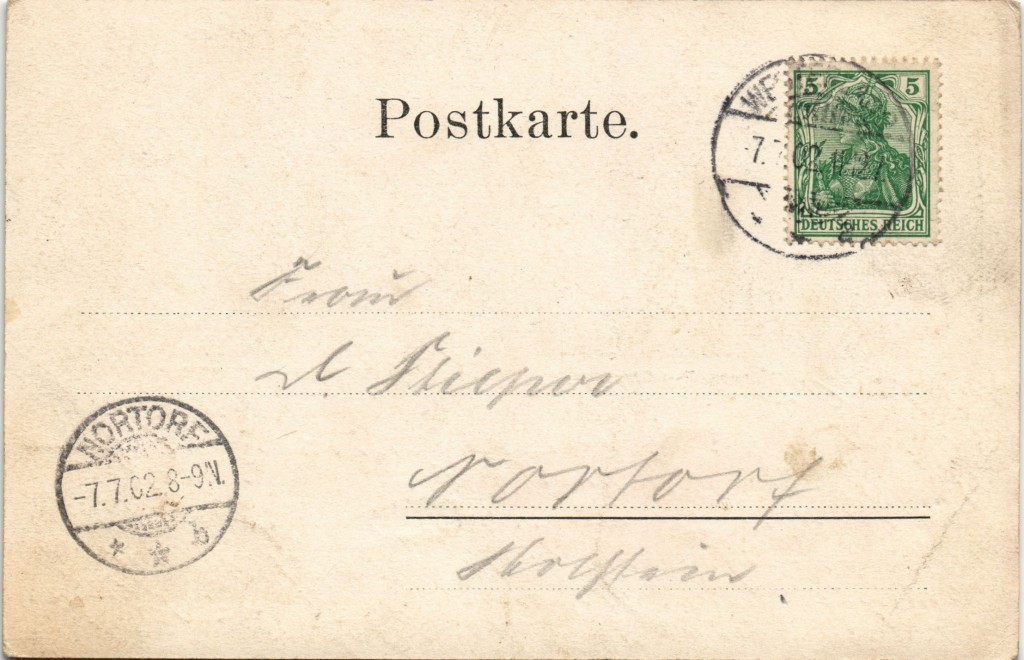 Postkarte.
5 5
DEUTSCHES REICH
7.7.02
Frau
Nortorf
Holstein
NORTORF
-7.7.02.8-9N.
* * b